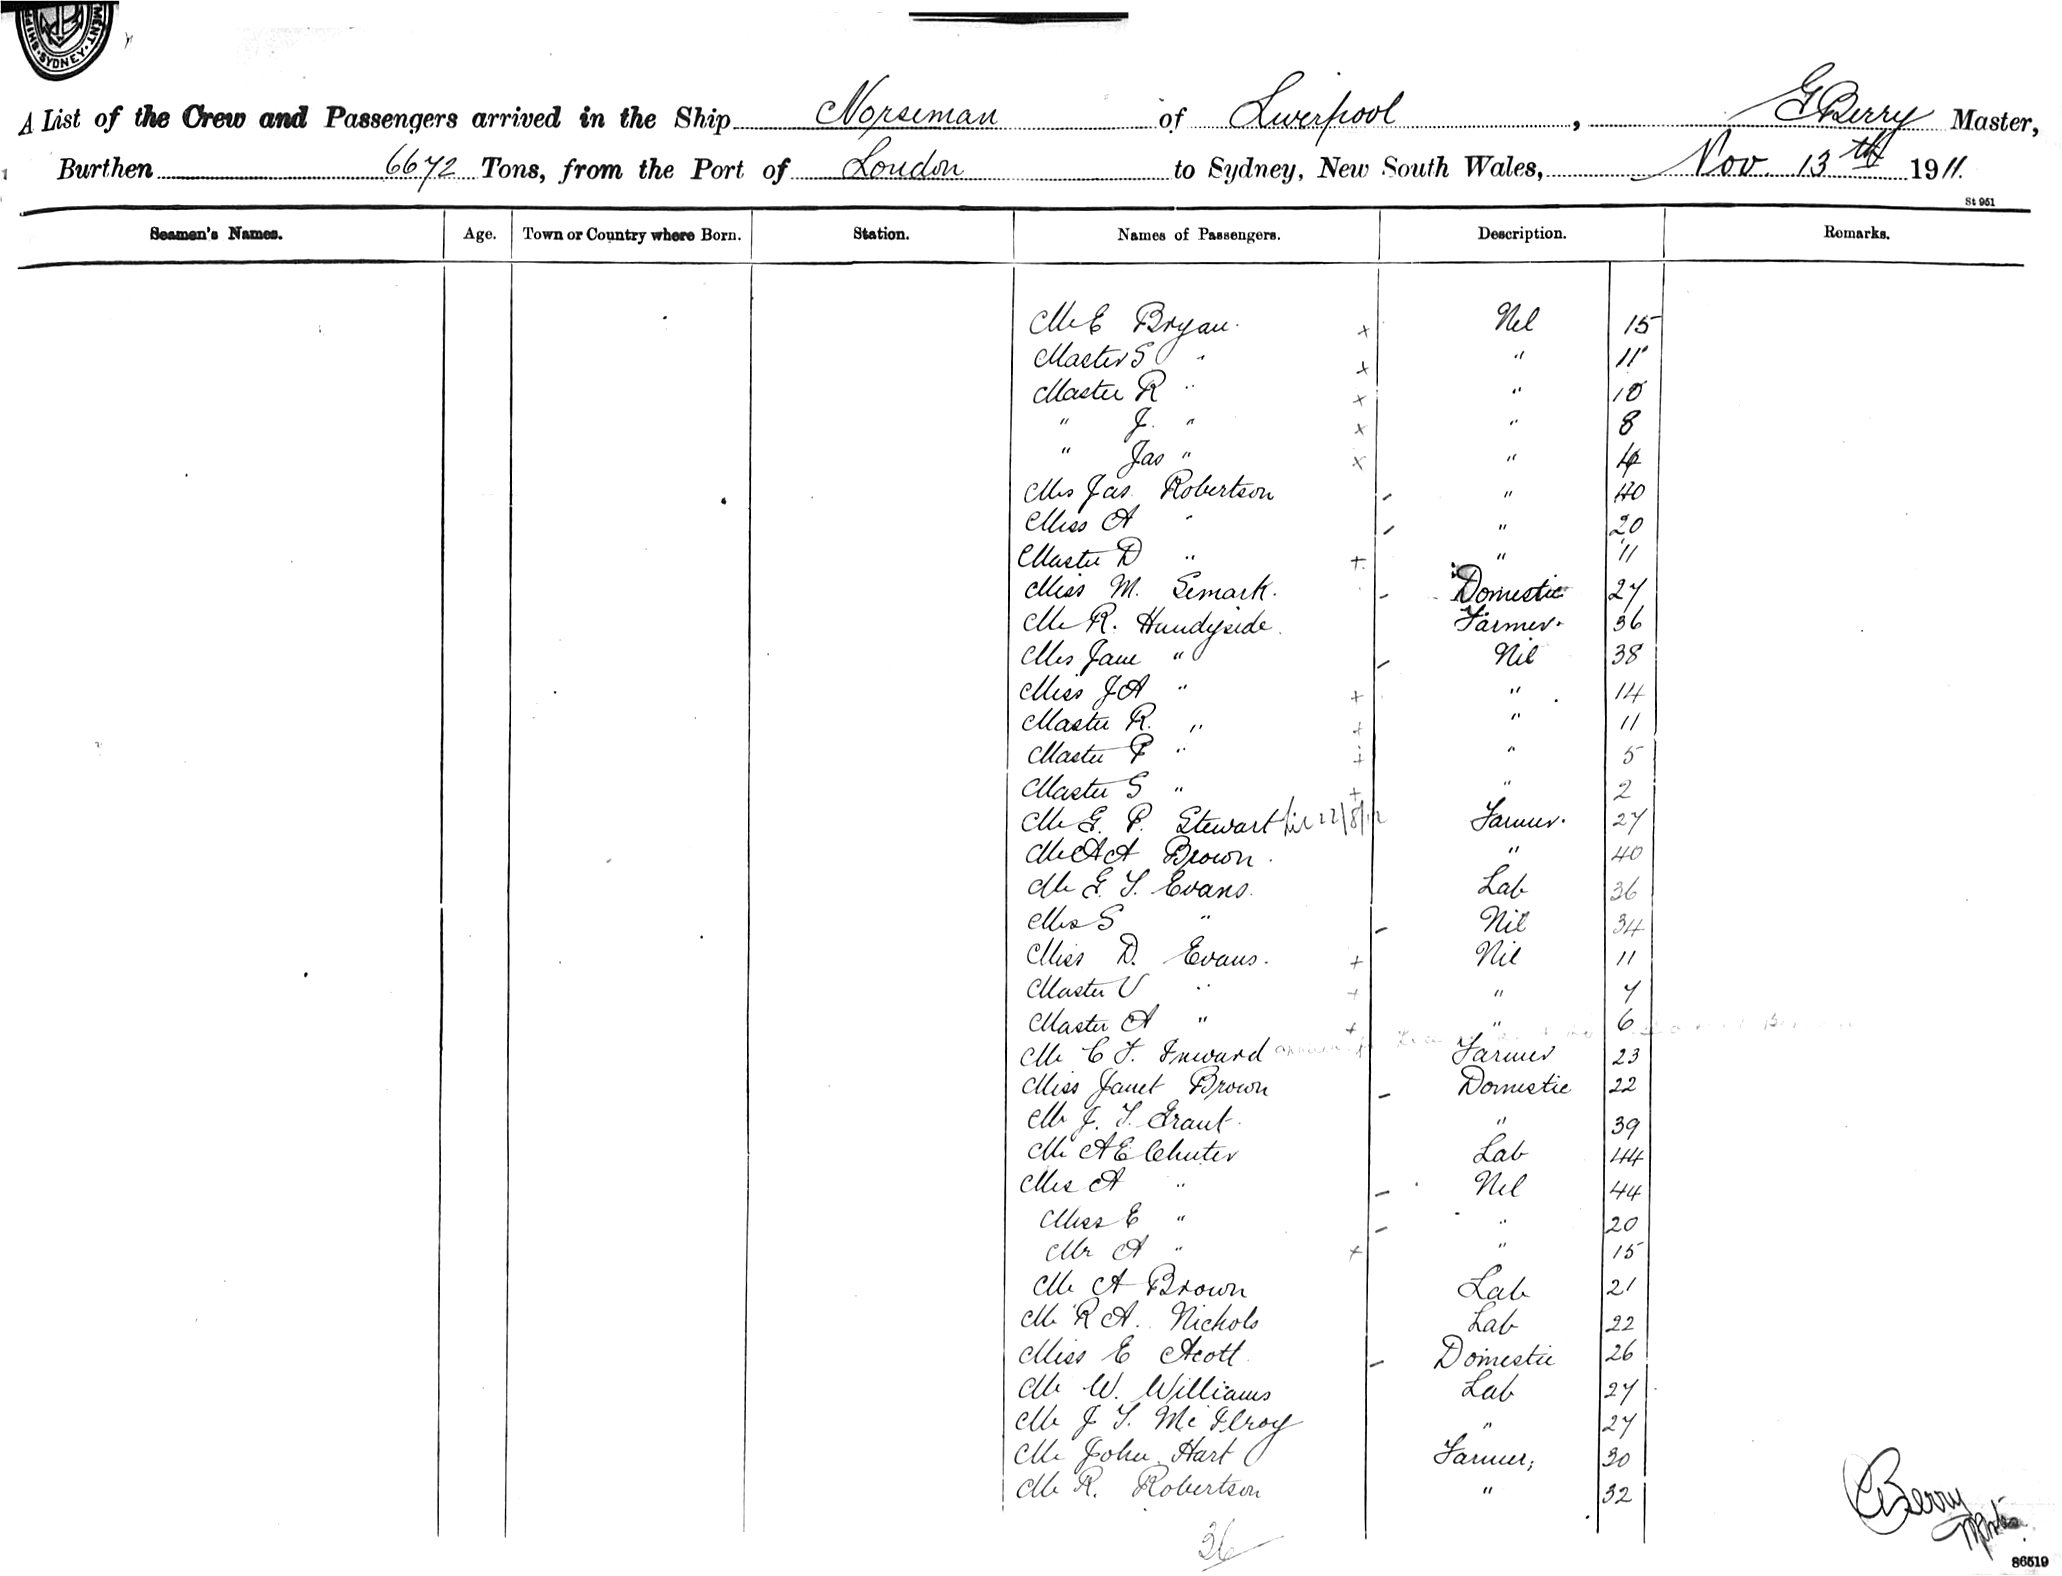 SYDNEY
A List of the Crew and Passengers arrived in the Ship Norseman of Liverpool, G Berry Master,
Burthen 6672 Tons, from the Port of London to Sydney, New South Wales, Nov. 13th 1911.
St 951
Seamen's Names. Age. Town or Country where Born. Station. Names of Passengers. Description. Remarks.
Mr E Bryan. x Nil 15
Master S " x " 11
Master R " x " 10
" J. " x " 8
" Jas " x " 4
Mrs Jas Robertson - " 40
Miss A " - " 20
Master D " + " 11
Miss M. Semark. - Domestic 27
Mr R. Hundyside. Farmer. 36
Mrs Jane " - Nil 38
Miss J A " + " 14
Master R. " + " 11
Master P " + " 5
Master S " + " 2
Mr G. P. Stewart 22/8/12 Farmer. 27
Mr A A Brown. " 40
Mr G. T. Evans. Lab 36
Mrs S " - Nil 34
Miss D. Evans. + Nil 11
Master V " + " 7
Master A " + " 6
Mr C F. Inward Farmer 23
Miss Janet Brown - Domestic 22
Mr J. T. Grant. " 39
Mr A E Chuter Lab 44
Mrs A " - Nil 44
Miss E " - " 20
Mr A " + " 15
Mr A Brown Lab 21
Mr R A. Nichols Lab 22
Miss E Acott - Domestic 26
Mr W. Williams Lab 27
Mr J T. McIlroy " 27
Mr John Hart Farmer, 30
Mr R. Robertson " 32
36
G Berry
Master
86519